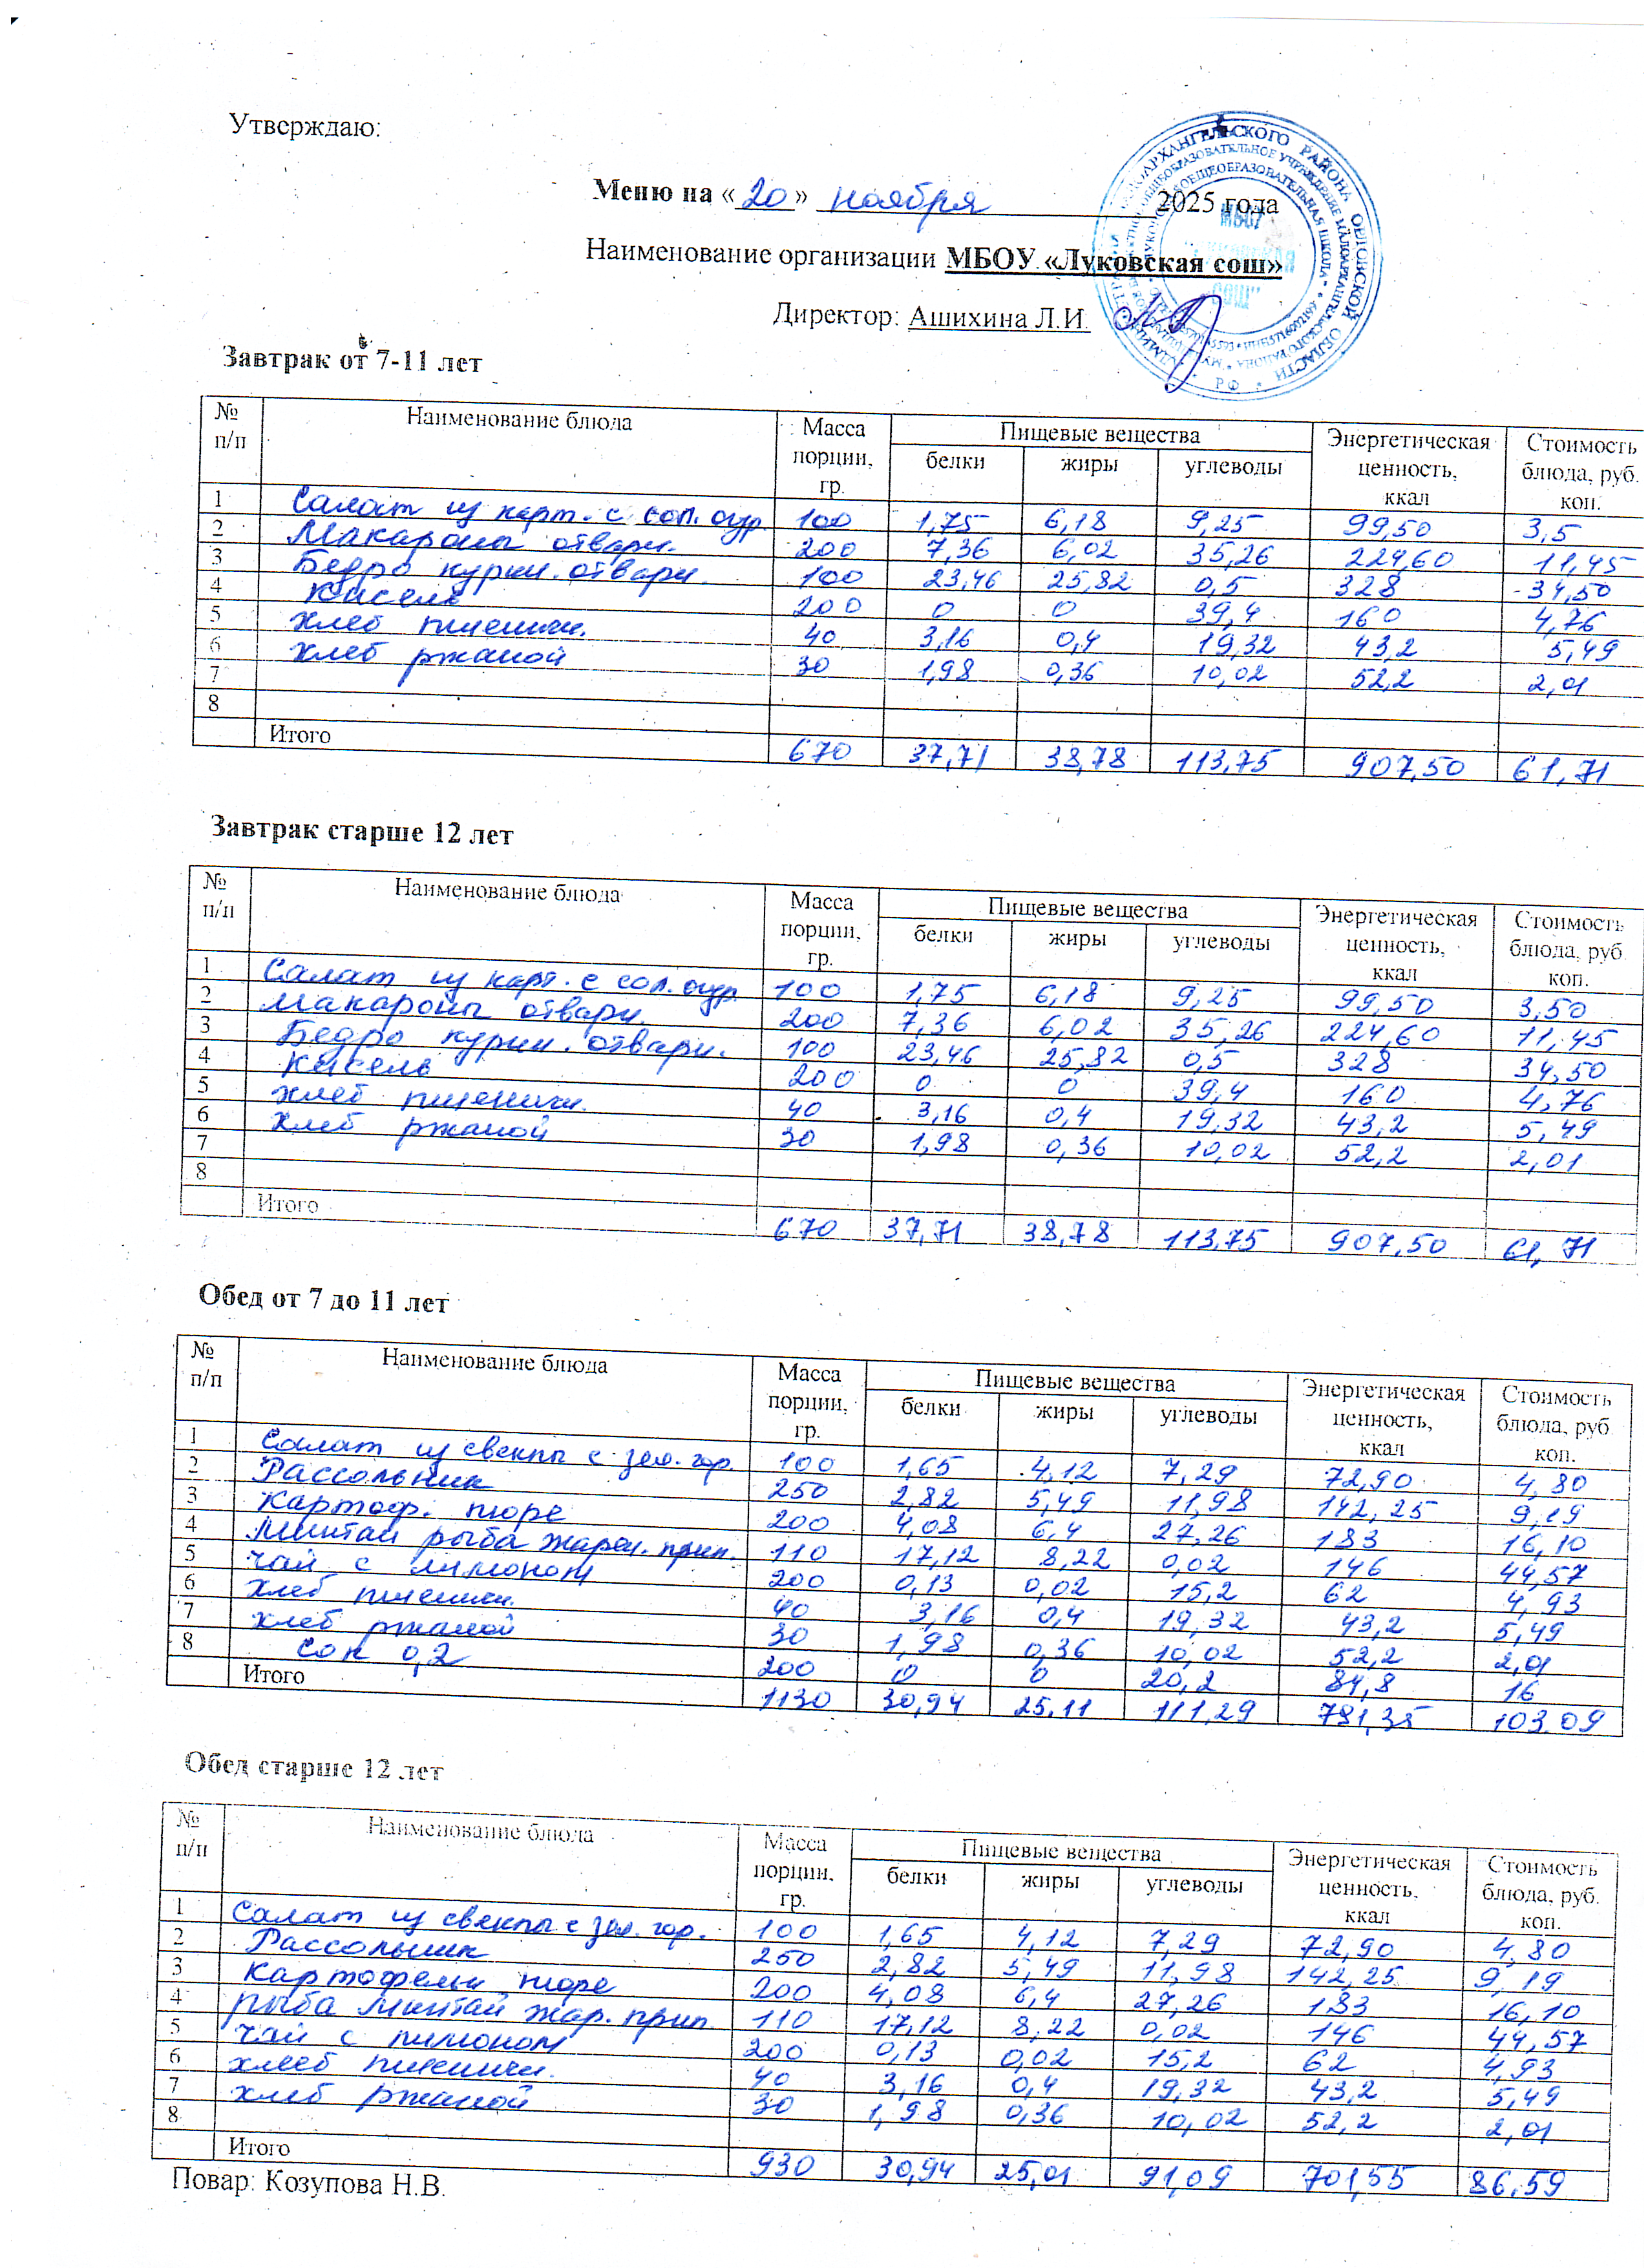 Утверждаю:
Меню на «20» ноября 2025 года
Наименование организации МБОУ «Луковская сош»
Директор: Ашихина Л.И.
МБОУ
СОШ"
Завтрак от 7-11 лет
№ п/п Наименование блюда Масса порции, гр. Пищевые вещества белки жиры углеводы Энергетическая ценность, ккал Стоимость блюда, руб. коп.
1 Салат из карт. с сол. огур. 100 1,75 6,18 9,25 99,50 3,5
2 Макароны отварн. 200 7,36 6,02 35,26 224,60 11,45
3 Бедро курин. отварн. 100 23,46 25,82 0,5 328 34,50
4 Кисель 200 0 0 39,4 160 4,76
5 Хлеб пшеничн. 40 3,16 0,4 19,32 43,2 5,49
6 Хлеб ржаной 30 1,98 0,36 10,02 52,2 2,01
7
8
Итого 670 37,71 38,78 113,75 907,50 61,71
Завтрак старше 12 лет
№ п/п Наименование блюда Масса порции, гр. Пищевые вещества белки жиры углеводы Энергетическая ценность, ккал Стоимость блюда, руб. коп.
1 Салат из карт. с сол. огур 100 1,75 6,18 9,25 99,50 3,50
2 Макароны отварн. 200 7,36 6,02 35,26 224,60 11,45
3 Бедро курин. отварн. 100 23,46 25,82 0,5 328 34,50
4 Кисель 200 0 0 39,4 160 4,76
5 Хлеб пшеничн. 40 3,16 0,4 19,32 43,2 5,49
6 Хлеб ржаной 30 1,98 0,36 10,02 52,2 2,01
7
8
Итого 670 37,71 38,78 113,75 907,50 61,71
Обед от 7 до 11 лет
№ п/п Наименование блюда Масса порции, гр. Пищевые вещества белки жиры углеводы Энергетическая ценность, ккал Стоимость блюда, руб. коп.
1 Салат из свеклы с зел. гор. 100 1,65 4,12 7,29 72,90 4,80
2 Рассольник 250 2,82 5,49 11,98 142,25 9,19
3 Картоф. пюре 200 4,08 6,4 27,26 183 16,10
4 Минтай рыба жарен. прип. 110 17,12 8,22 0,02 146 44,57
5 Чай с лимоном 200 0,13 0,02 15,2 62 4,93
6 Хлеб пшеничн. 40 3,16 0,4 19,32 43,2 5,49
7 Хлеб ржаной 30 1,98 0,36 10,02 52,2 2,01
8 Сок 0,2 200 0 0 20,2 84,8 16
Итого 1130 30,94 25,11 111,29 781,35 103,09
Обед старше 12 лет
№ п/п Наименование блюда Масса порции, гр. Пищевые вещества белки жиры углеводы Энергетическая ценность, ккал Стоимость блюда, руб. коп.
1 Салат из свеклы с зел. гор. 100 1,65 4,12 7,29 72,90 4,80
2 Рассольник 250 2,82 5,49 11,98 142,25 9,19
3 Картофельн пюре 200 4,08 6,4 27,26 183 16,10
4 Рыба минтай жар. прип. 110 17,12 8,22 0,02 146 44,57
5 Чай с лимоном 200 0,13 0,02 15,2 62 4,93
6 Хлееб пшеничн. 40 3,16 0,4 19,32 43,2 5,49
7 Хлеб ржаной 30 1,98 0,36 10,02 52,2 2,01
8
Итого 930 30,94 25,01 91,09 701,55 86,59
Повар: Козупова Н.В.